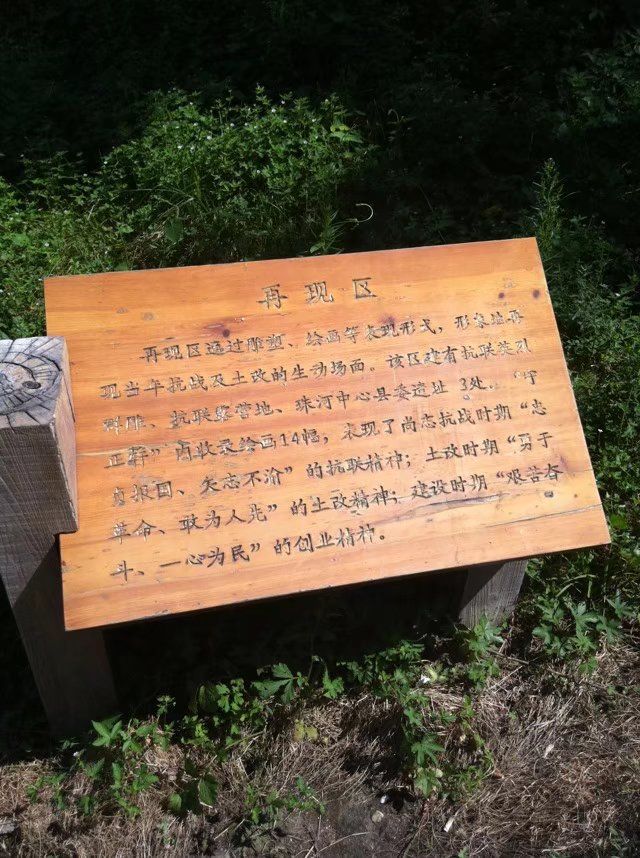 再现区
再现区通过雕塑、绘画等表现形式，形象地再
现当年抗战及土改的生动场面。该区建有抗联英烈
群雕、抗联露营地、珠河中心县委遗址 3处。“
正群”内收录绘画14幅，表现了尚志抗战时期“忠
贞报国、矢志不渝”的抗联精神；土改时期“勇于
革命、敢为人先”的土改精神；建设时期“艰苦奋
斗、一心为民”的创业精神。